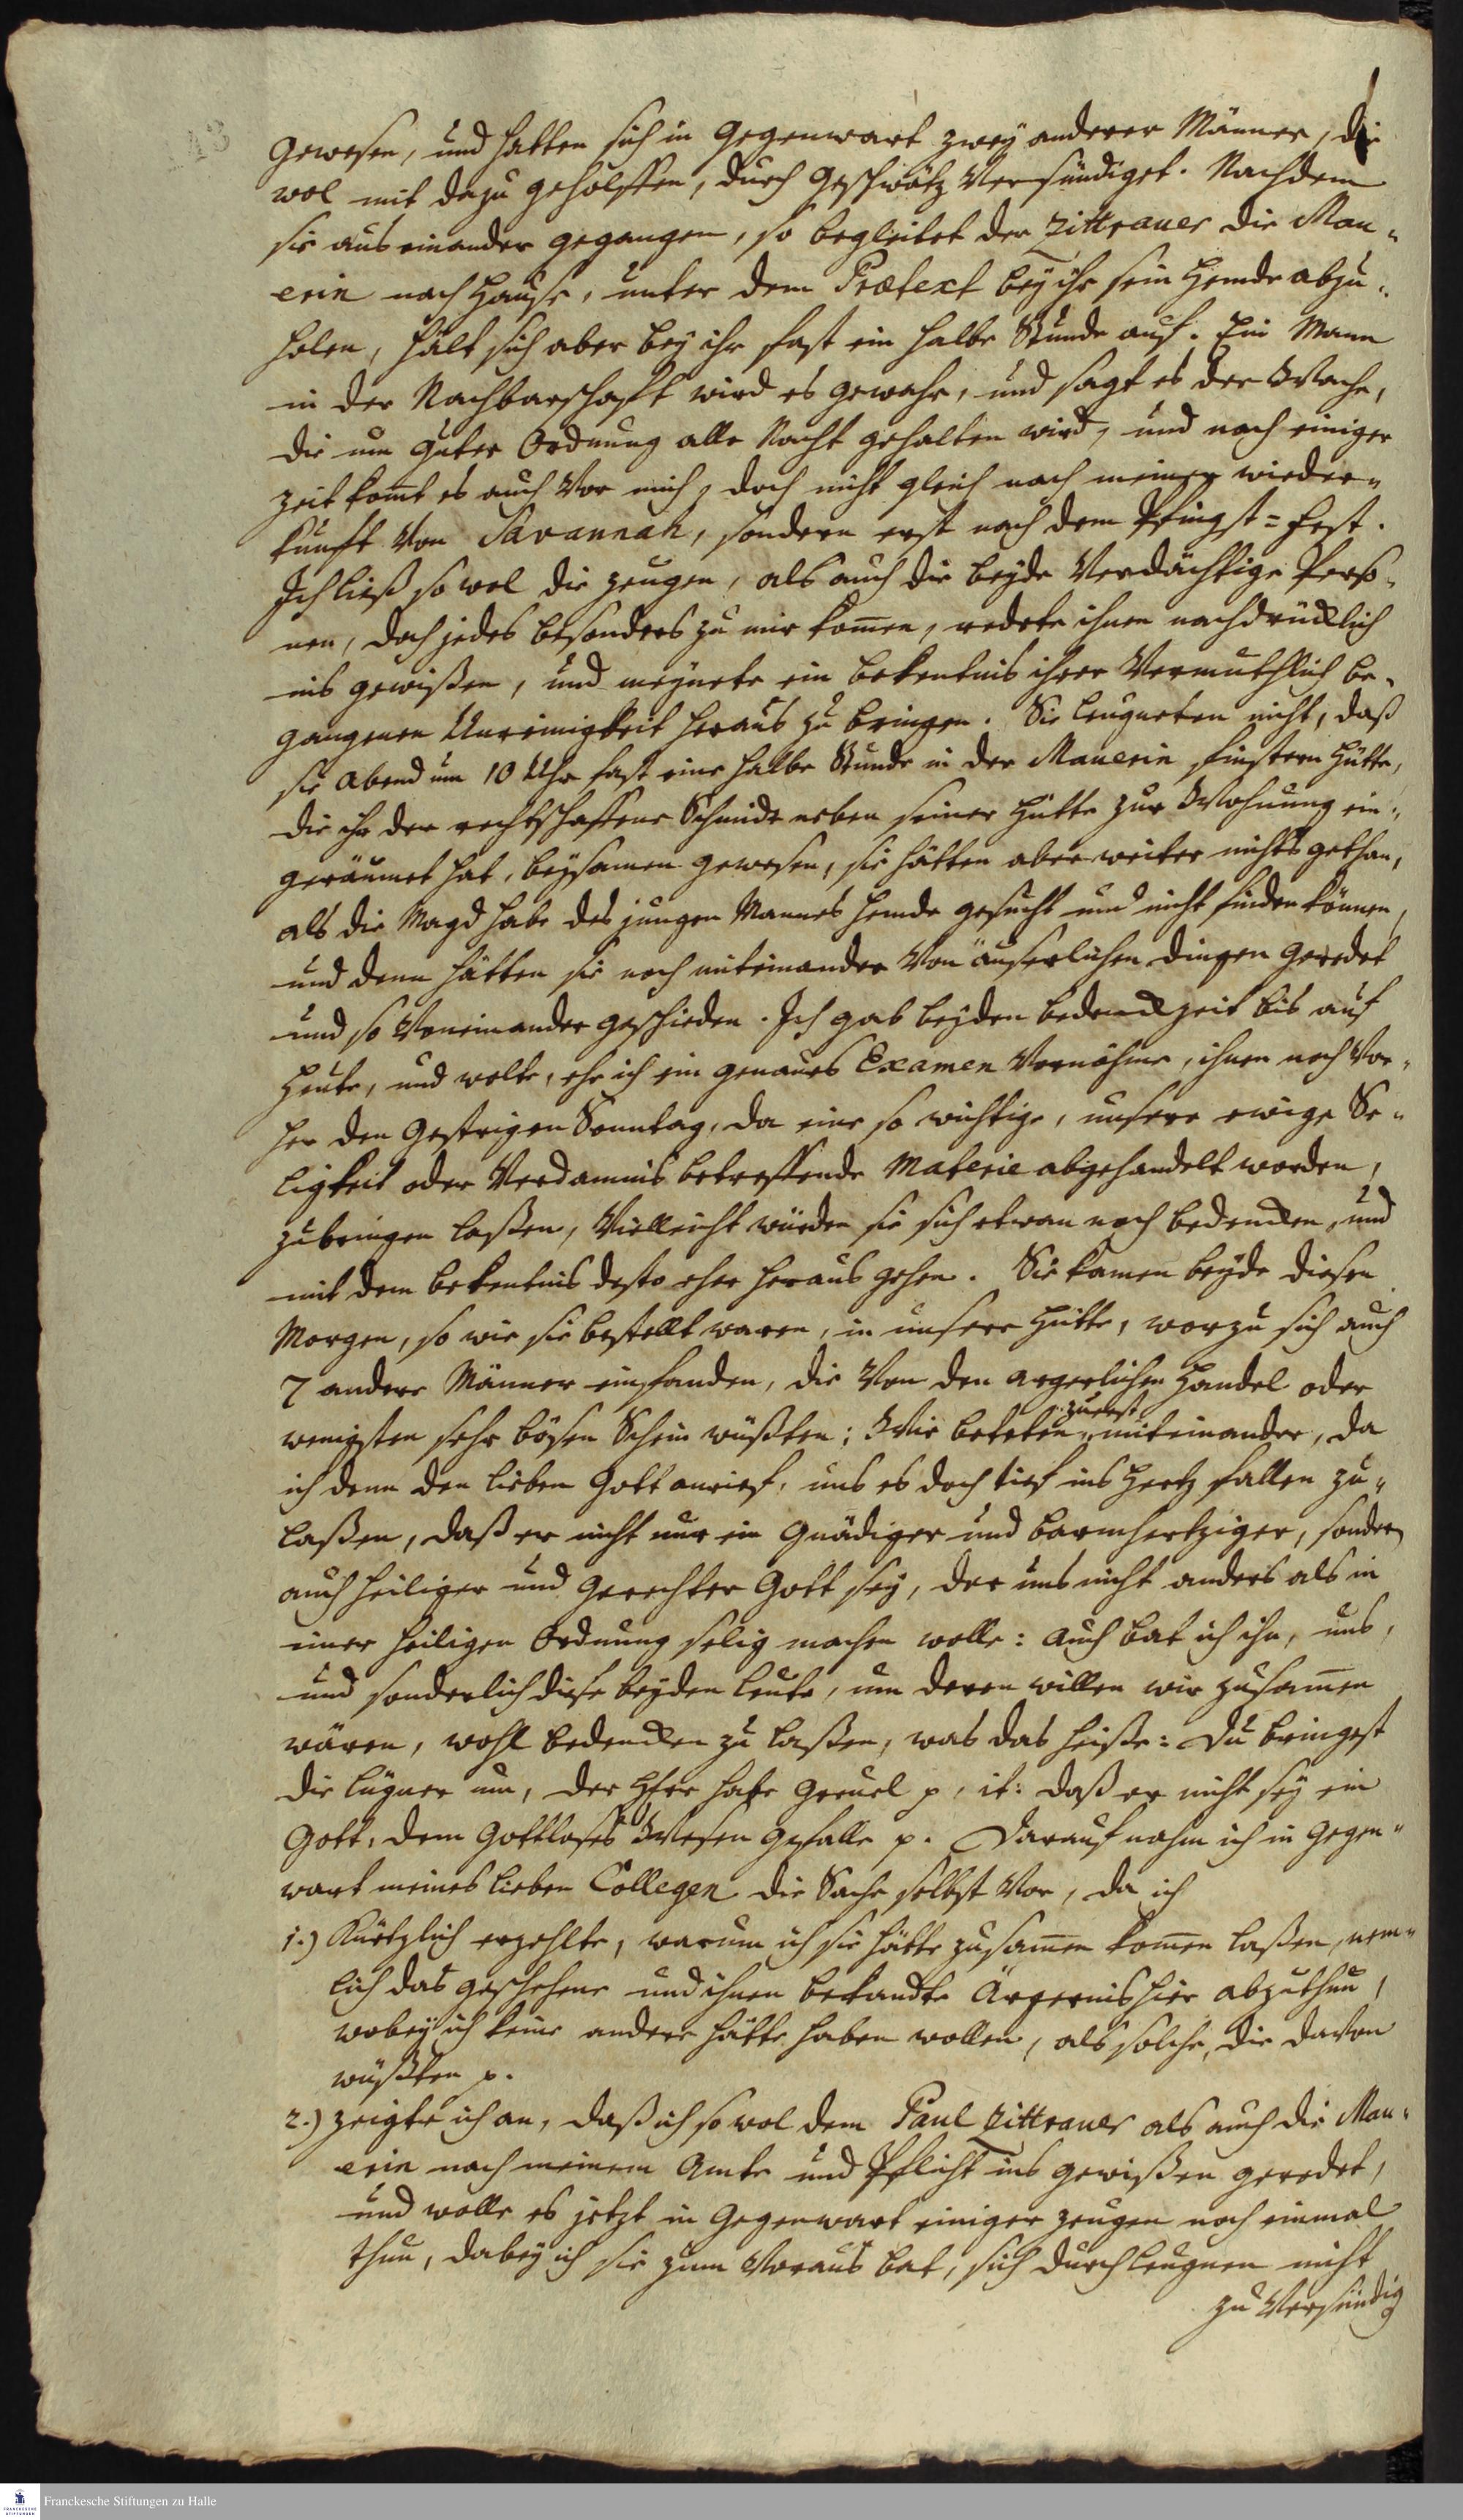 43
gewesen, und hatten sich in Gegenwart zwey anderer Männer, die
wol mit dazu geholffen, durch Geschwätz versündiget. Nachdem
sie aus einander gegangen, so begleitet der Zittrauer die Mau-
erin nach Hause, unter dem Prætext bey ihr sein Hemde abzu-
holen, hält sich aber bey ihr fast ein halbe Stunde auf. Ein Mann
in der Nachbarschafft wird es gewahr, und sagt es der Wache,
die um guter Ordnung alle Nacht gehalten wird, und nach einiger
Zeit komt es auch vor mich, doch nicht gleich nach meiner wieder-
kunfft von Savannah, sondern erst nach dem Pfingst-Fest.
Ich ließ so wol die Zeugen, als auch die beyde verdächtige Perso-
nen, doch jedes besonders zu mir kommen, redete ihnen nachdrücklich
ins Gewißen, und meynete ein Bekentnis ihrer vermuthlich be-
gangenen Unreinigkeit heraus zu bringen. Sie leugneten nicht, daß
sie Abend um 10 Uhr fast eine halbe Stunde in der Mauerin finstern Hütte,
die ihr der rechtschaffene Schmidt neben seiner Hütte zur Wohnung ein-
geräumet hat, beysamen gewesen, sie hätten aber weiter nichts gethan,
als die Magd habe des jungen Mannes Hemde gesucht und nicht finden können,
und denn hätten sie noch miteinander von äuserlichen Dingen geredet
und so voneinander geschieden. Ich gab beyden Bedenckzeit bis auf
Heute, und wolte, ehe ich ein genaues Examen vornähme, ihnen noch vor-
her den gestrigen Sonntag, da eine so wichtige, unsere ewige Se-
ligkeit oder Verdamnis betreffende Materie abgehandelt worden,
zubringen laßen, vielleicht würden sie sich etwan noch bedencken, und
mit dem Bekentnis desto eher heraus gehen. Sie kamen beyde diesen
Morgen, so wie sie bestellt waren, in unsere Hütte, worzu sich auch
7 andere Männer einfanden, die von den argerlichen Handel oder
wenigsten sehr bösen Schein wüßten: Wir beteten zuerst miteinander, da
ich denn den lieben Gott anrief, uns es doch tief ins Hertz fallen zu-
laßen, daß er nicht nur ein Gnädiger und barmhertziger, sondern
auch heiliger und Gerechter Gott sey, der uns nicht anders als in
einer heiligen Ordnung selig machen wolle: auch bat ich ihn, uns,
und sonderlich diese beyden Leute, um deren willen wir zusammen
wären, wohl bedencken zu laßen, was das heiße: Du bringest
die Lügner um, der HErr hat Greuel p, it: daß er nicht sey ein
Gott, dem Gottloses Wesen gefalle p. Darauf nahm ich in Gegen-
wart meines lieben Collegen die Sache selbst vor, da ich
1.) Kürtzlich erzehlte, warum ich sie hätte zusammen kommen laßen, nem-
lich das geschehene und ihnen bekandte Ärgernis hier abzuthun,
wobey ich keine andere hätte haben wollen, als solche, die davon
wüßten p.
2.) Zeigte ich an, daß ich so wol dem Paul Zittrauer als auch die Mau-
erin nach meinem Amte und Pflicht ins Gewißen geredet,
und wolle es jetzt in Gegenwart einiger Zeugen noch einmal
thun, dabey ich sie zum Voraus bat, sich durch leugnen nicht
zu versündig
Franckesche Stiftungen zu Halle